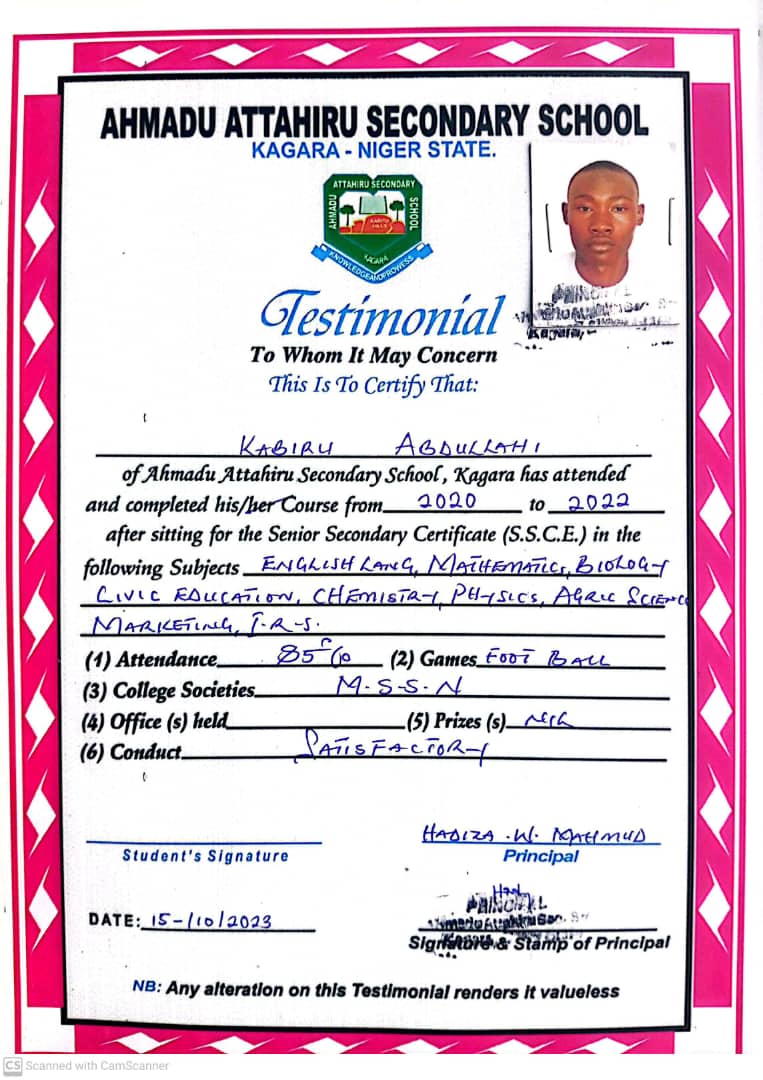 AHMADU ATTAHIRU SECONDARY SCHOOL
KAGARA - NIGER STATE.
ATTAHIRU SECONDARY
AHMADU
SCHOOL
KAGARA
KNOWLEDGE AND PROWESS
Testimonial
To Whom It May Concern
This Is To Certify That:
KABIRU ABDULLAHI
of Ahmadu Attahiru Secondary School, Kagara has attended
and completed his/her Course from 2020 to 2022
after sitting for the Senior Secondary Certificate (S.S.C.E.) in the
following Subjects ENGLISH LANG, MATHEMATICS, BIOLOGY
CIVIC EDUCATION, CHEMISTRY, PHYSICS, AGRIC SCIENCE
MARKETING, I.R.S.
(1) Attendance 85% (2) Games FOOT BALL
(3) College Societies M.S.S.N
(4) Office (s) held (5) Prizes (s)
(6) Conduct SATISFACTORY
HADIZA .W. MAHMUD
Student's Signature Principal
PRINCIPAL
DATE: 15-/10/2023
Signature & Stamp of Principal
NB: Any alteration on this Testimonial renders it valueless
CS Scanned with CamScanner